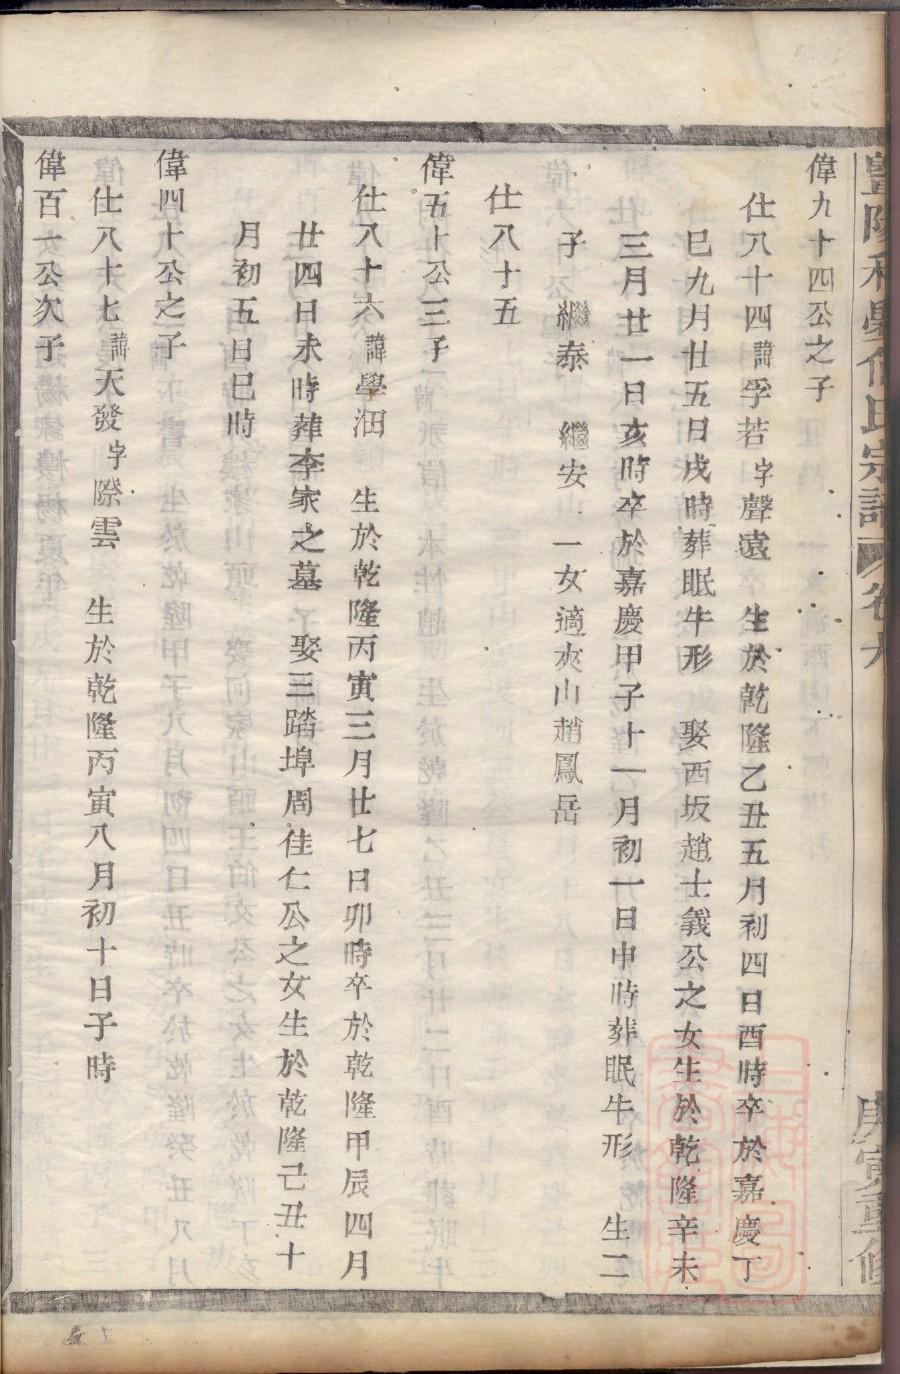 偉九十四公之子
仕八十四諱孚若字聲遠　生於乾隆乙丑五月初四日酉時卒於嘉慶丁
巳九月廿五日戌時葬眠牛形　娶西坂趙士義公之女生於乾隆辛未
三月廿一日亥時卒於嘉慶甲子十一月初一日申時葬眠牛形　生二
子　繼泰　繼安　一女適夾山趙鳳岳
仕八十五
偉五十公三子
仕八十六諱學沺　生於乾隆丙寅三月廿七日卯時卒於乾隆甲辰四月
廿四日未時葬李家之墓　娶三踏埠周佳仁公之女生於乾隆己丑十
月初五日巳時
偉四十公之子
仕八十七諱天發字際雲　生於乾隆丙寅八月初十日子時
偉百一公次子